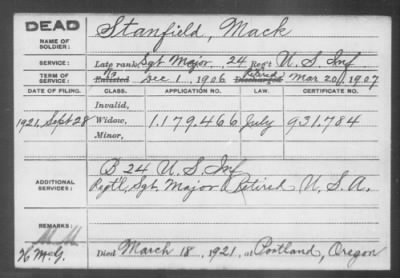 DEAD
NAME OF SOLDIER: Stanfield, Mack
SERVICE: Late rank, Sgt Major, 24 Reg't U. S. Inf
TERM OF SERVICE: Enlisted Dec 1, 1906 Retired Discharged Mar 20, 1907
DATE OF FILING. CLASS. APPLICATION NO. LAW. CERTIFICATE NO.
Invalid,
1921, Sept 28 Widow, 1.179.466 July 931.784
Minor,
ADDITIONAL SERVICES: B 24 U. S. Inf
Reg'tl, Sgt. Major Retired U. S. A.
REMARKS:
Died March 18, 1921, at Portland, Oregon